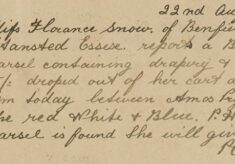 22nd Au
Miss Florance Snow, of Benfie
Stansted Essex. reports a B
arsel containing drapery &
/: droped out of her cart a
m today between Amos
he red White & Blue, P.H
arsel is found She will give